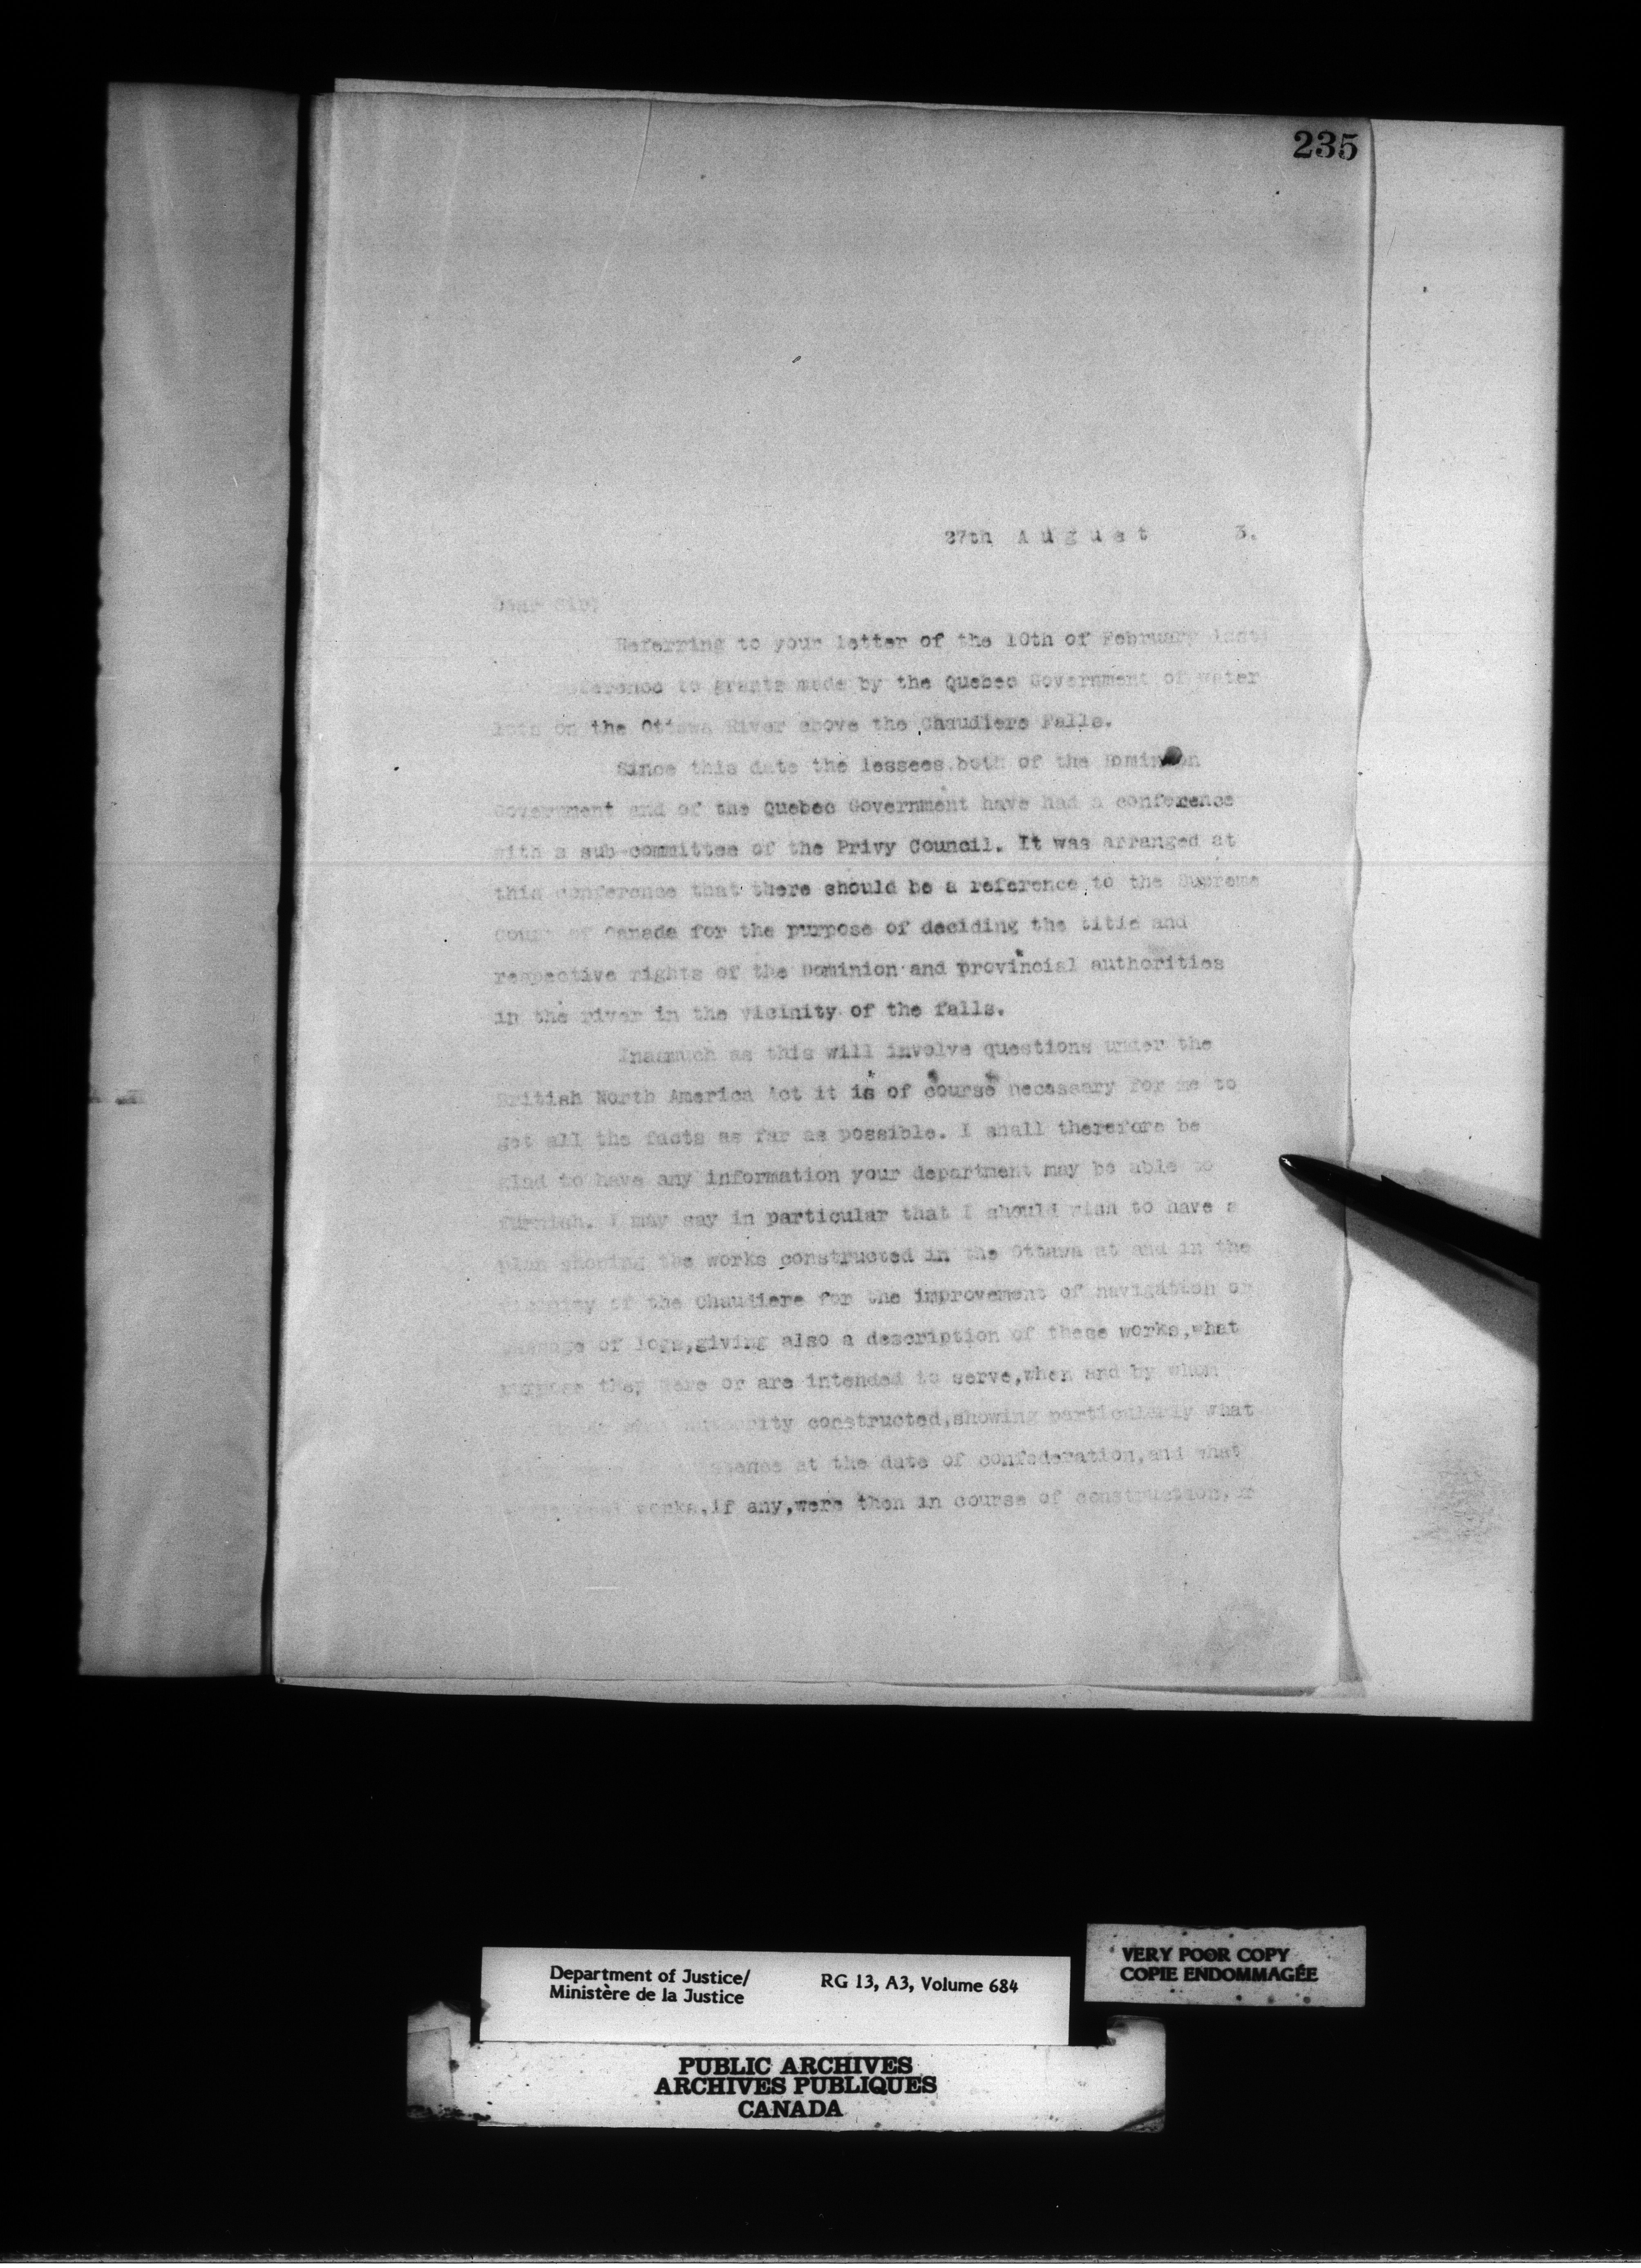 235
27th August 3.
Dear Sir:
Referring to your letter of the 10th of February last
reference to grants made by the Quebec Government of water
lots on the Ottawa River above the Chaudiere Falls.
Since this date the lessees both of the Dominion
Government and of the Quebec Government have had a conference
with a sub-committee of the Privy Council. It was arranged at
this conference that there should be a reference to the Supreme
Court of Canada for the purpose of deciding the title and
respective rights of the Dominion and provincial authorities
in the river in the vicinity of the falls.
Inasmuch as this will involve questions under the
British North America Act it is of course necessary for me to
get all the facts as far as possible. I shall therefore be
glad to have any information your department may be able to
furnish. I may say in particular that I should wish to have a
plan showing the works constructed in the Ottawa at and in the
vicinity of the Chaudiere for the improvement of navigation or
passage of logs,giving also a description of these works,what
purpose they were or are intended to serve,when and by whom
what authority constructed,showing particularly what
at the date of confederation,and what
works,if any,were then in course of construction,or
VERY POOR COPY
COPIE ENDOMMAGÉE
Department of Justice/ RG 13, A3, Volume 684
Ministère de la Justice
PUBLIC ARCHIVES
ARCHIVES PUBLIQUES
CANADA